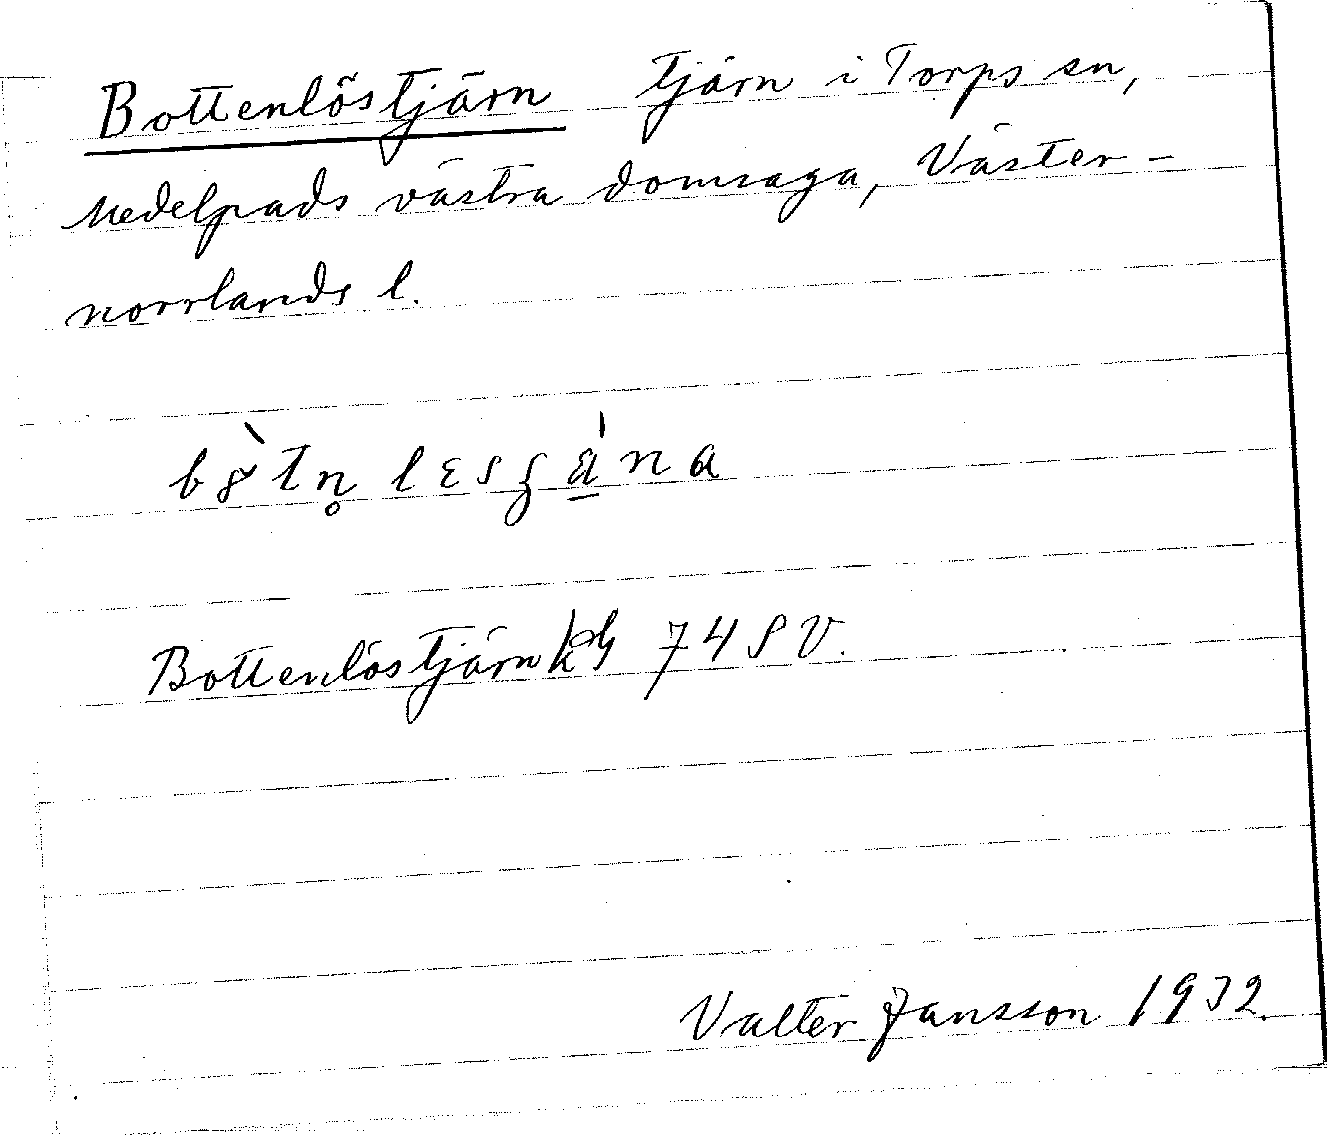 Bottenlöstjärn tjärn i Torps sn,
Medelpads västra domsaga, Väster-
norrlands l.
Bottenlöstjärn 74 SV.
Valter Jansson 1932.